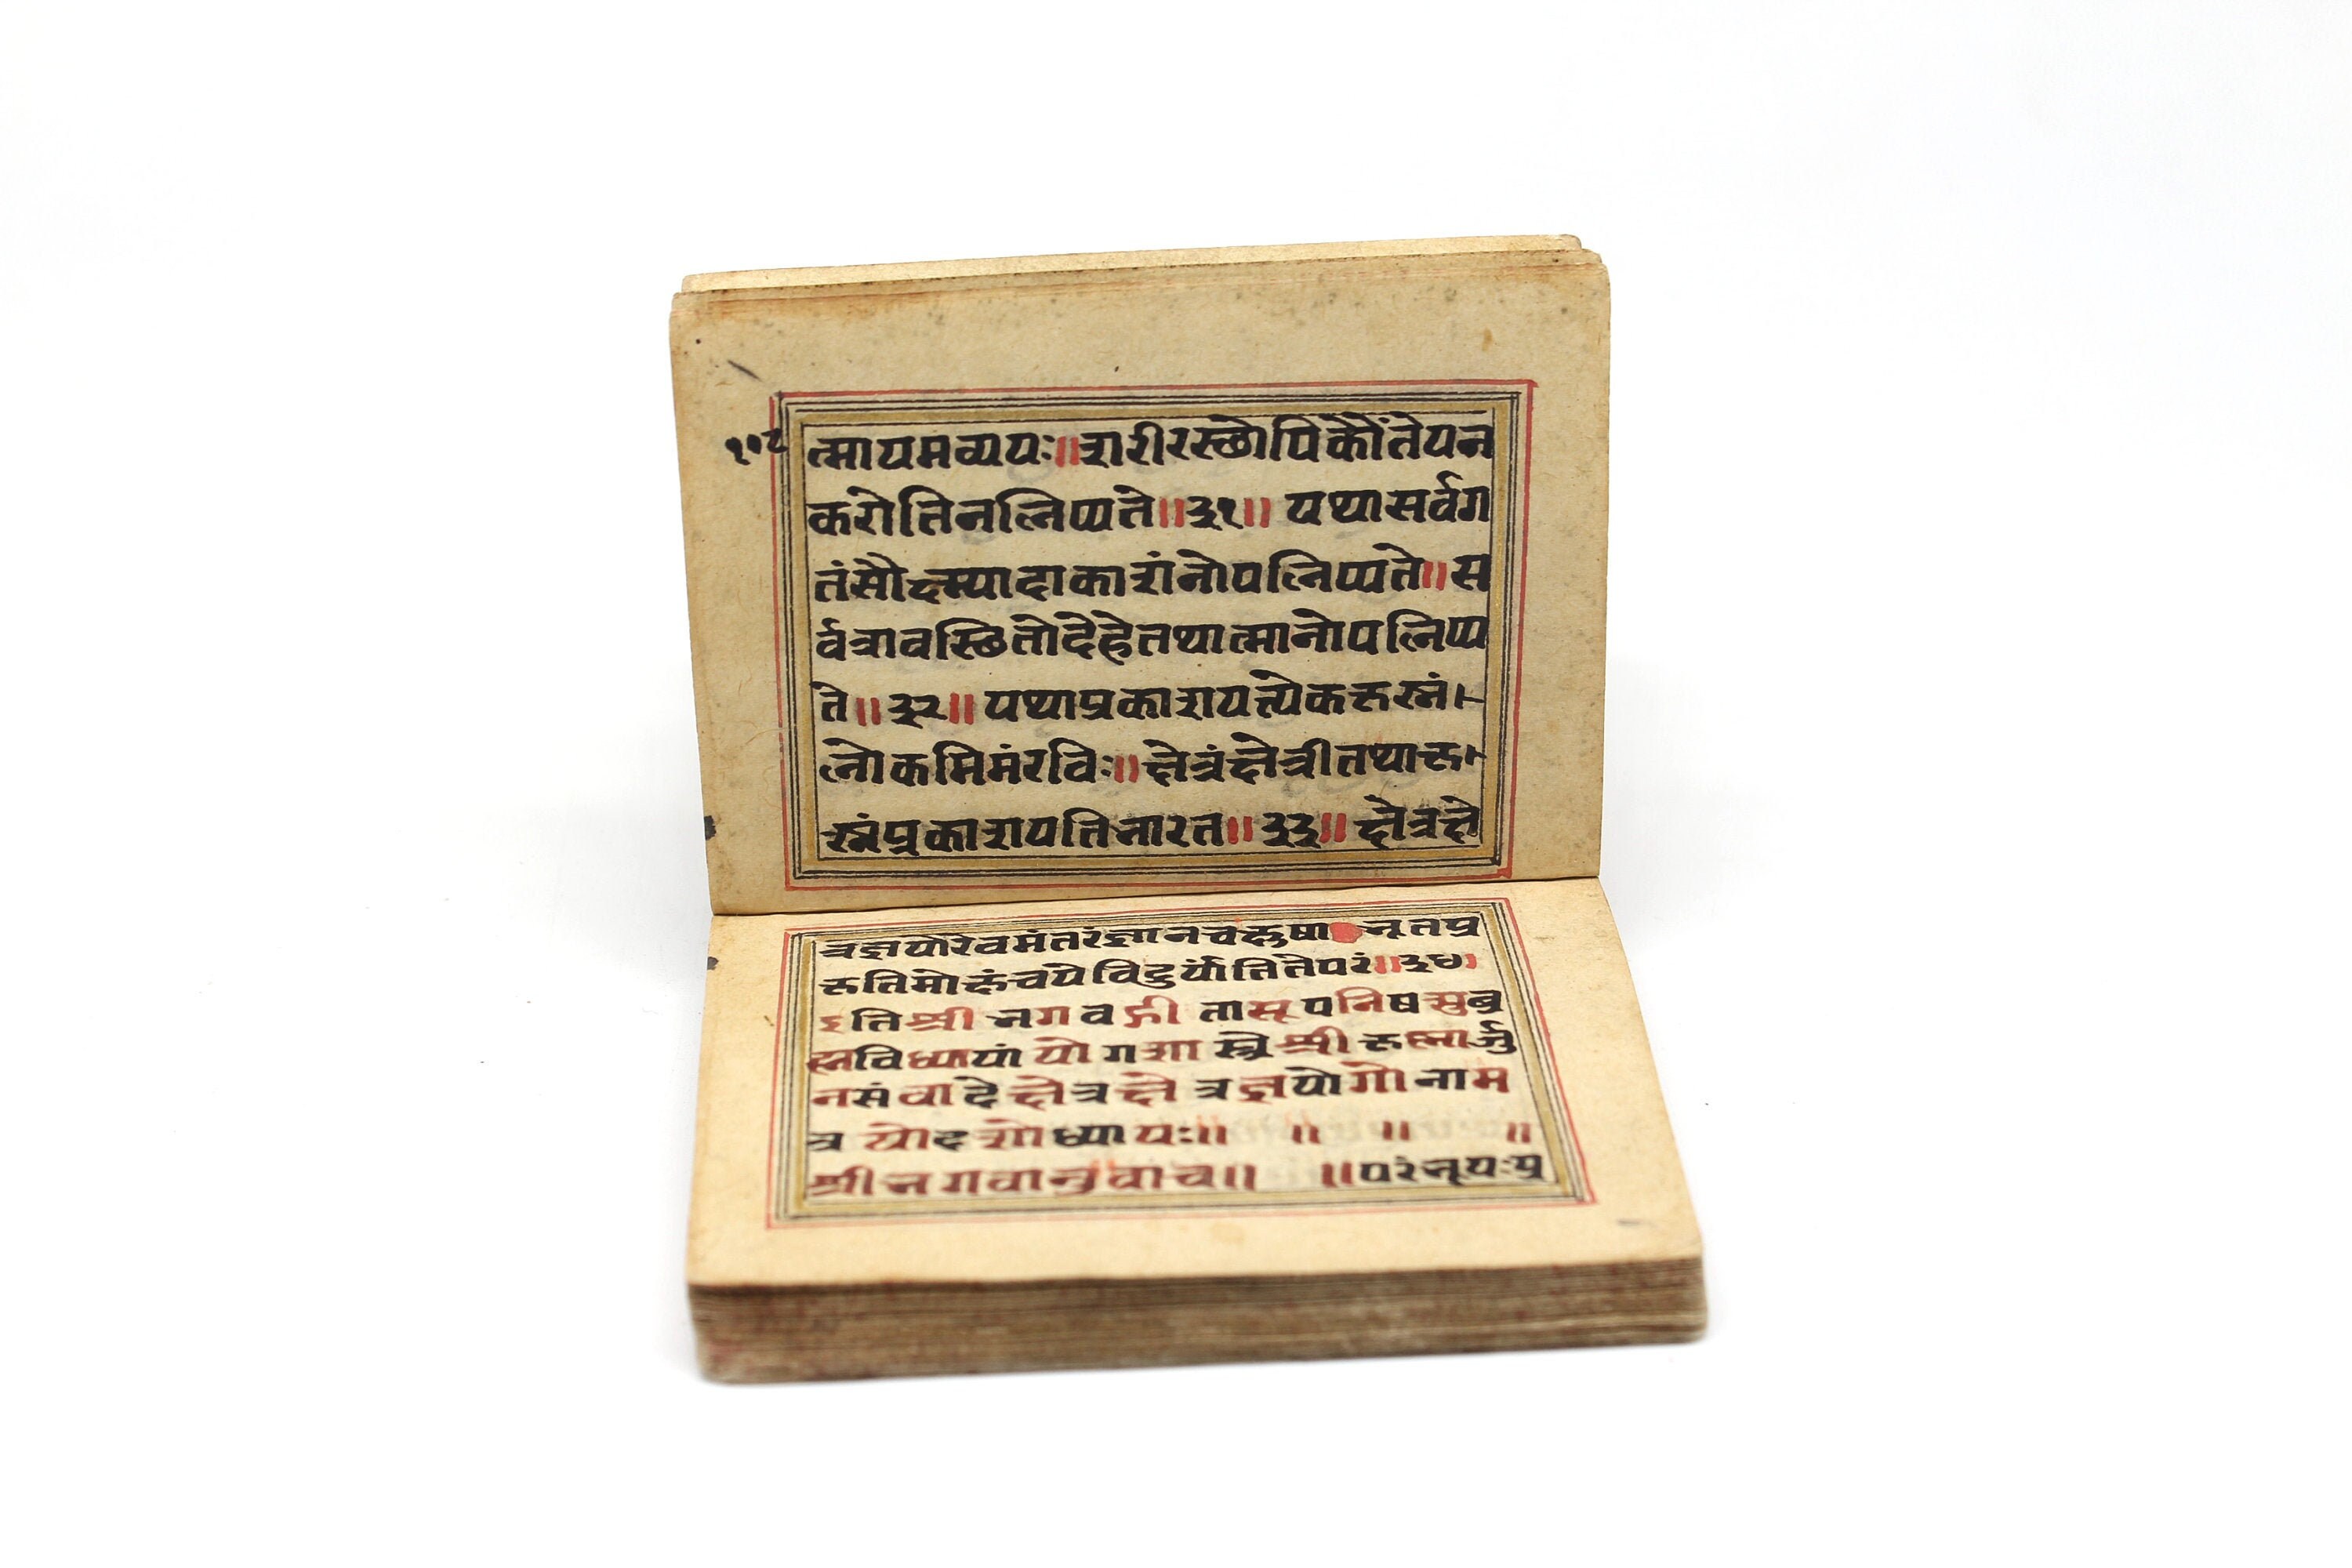 ११८
त्मायमव्ययः॥शरीरस्छोपिकौंतेयन
करोतिनलिप्यते॥३१॥ यथासर्वग
तंसौक्ष्म्यादाकाशंनोपलिप्यते॥स
र्वत्रावस्छितोदेहेतथात्मानोपलिप्य
ते॥३२॥ यथाप्रकाशयत्येकःकृत्स्नं
लोकमिमंरविः॥क्षेत्रंक्षेत्रीतथाकृ
त्स्नंप्रकाशयतिभारत॥३३॥ क्षेत्रक्षे
त्रज्ञयोरेवमंतरंज्ञानचक्षुषा भूतप्र
कृतिमोक्षंचयेविदुर्यांतितेपरं॥३४॥
इतिश्रीभगवद्गीतासूपनिषत्सुब्र
ह्मविद्यायांयोगशास्त्रेश्रीकृष्णार्जु
नसंवादेक्षेत्रक्षेत्रज्ञयोगोनाम
त्रयोदशोध्यायः॥ ॥ ॥ ॥
श्रीभगवानुवाच॥ ॥परंभूयःप्र